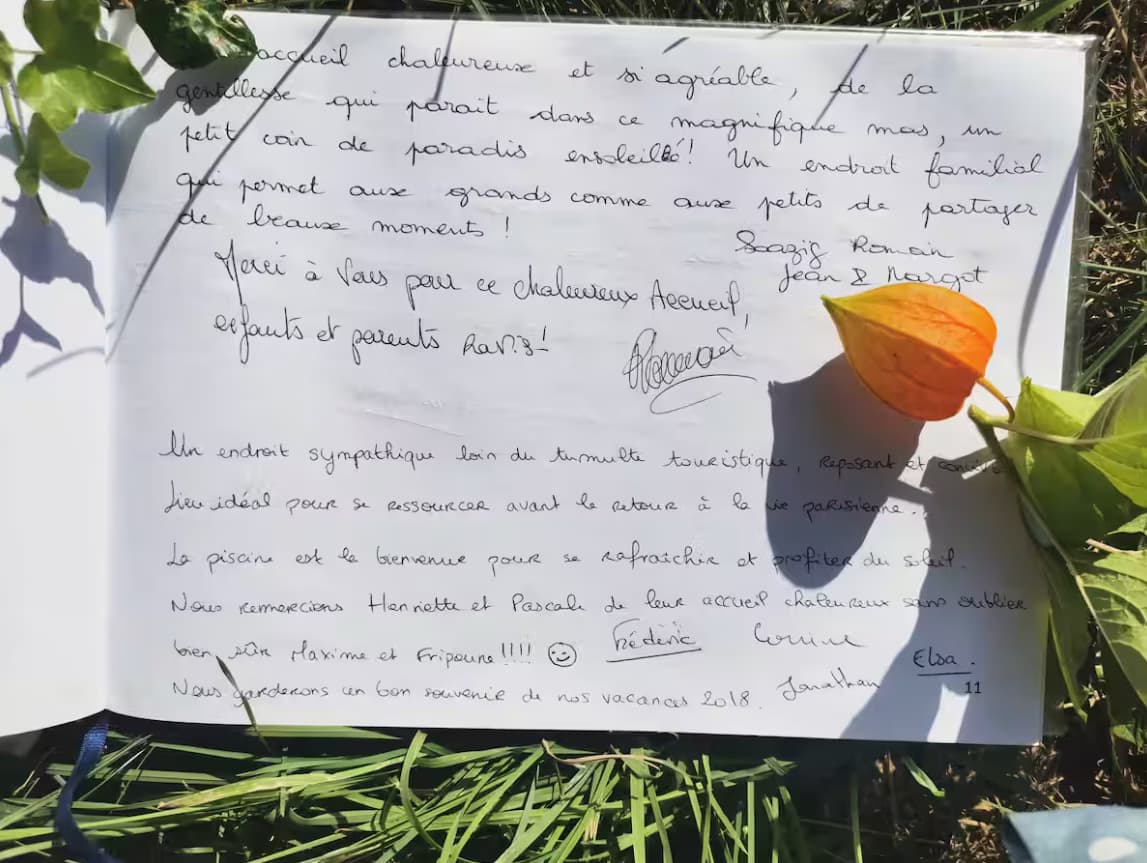 accueil chaleureuse et si agréable, de la
gentillesse qui parait dans ce magnifique mas, un
petit coin de paradis ensoleillé! Un endroit familial
qui permet aux grands comme aux petits de partager
de beaux moments !
Soazig Romain
Jean & Margot
Merci à Vous pour ce chaleureux Accueil,
enfants et parents Ravis!
Un endroit sympathique loin du tumulte touristique, reposant et
Lieu idéal pour se ressourcer avant le retour à la vie parisienne...
La piscine est la bienvenue pour se rafraîchir et profiter du soleil.
Nous remercions Henriette et Pascale de leur accueil chaleureux sans oublier
bien sûr Maxime et Fripoune!!!! ☺ Frédéric Corinne
Elsa.
Nous garderons un bon souvenir de nos vacances 2018. Jonathan
11